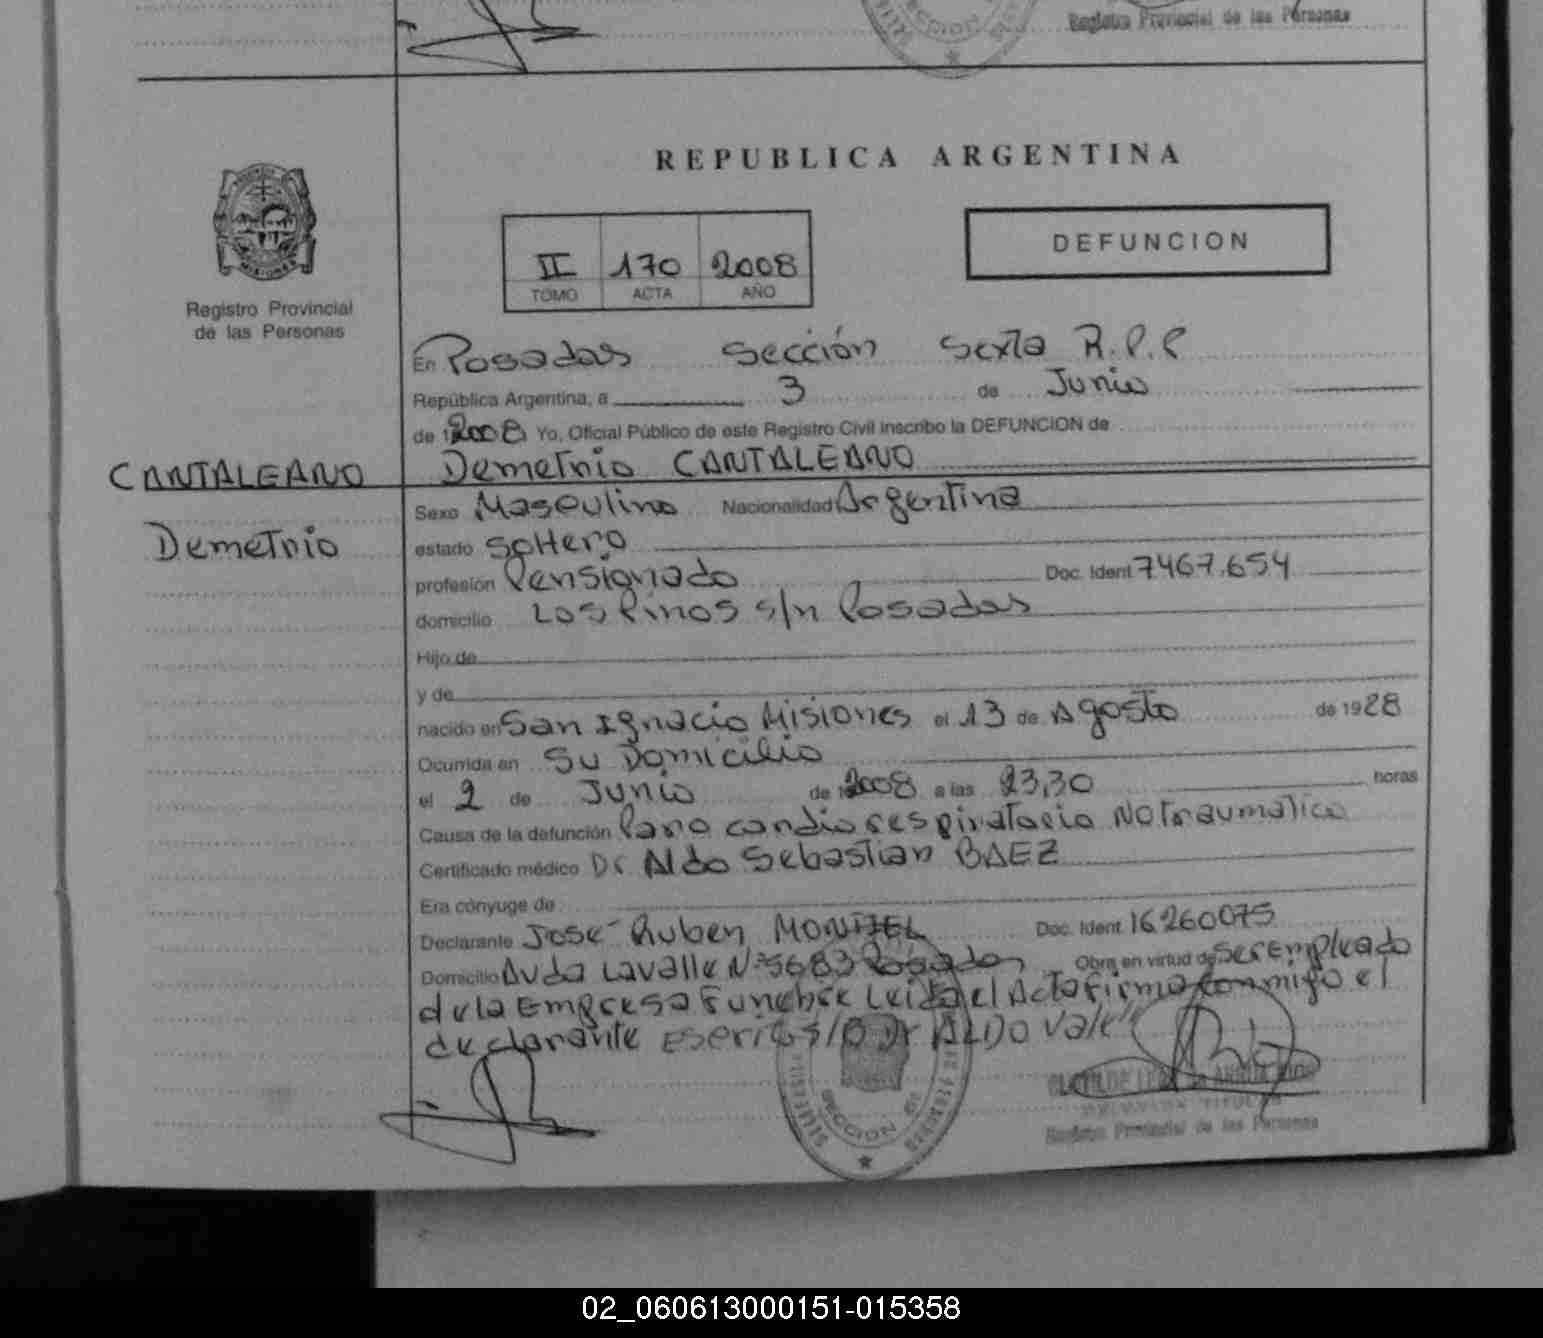 Registro Provincial de las Personas
SECCION
REPUBLICA ARGENTINA
II 170 2008
TOMO ACTA AÑO
DEFUNCION
Registro Provincial
de las Personas
En Posadas Sección Sexta R.P.P
República Argentina, a 3 de Junio
de 2008 Yo, Oficial Público de este Registro Civil inscribo la DEFUNCION de
CANTALEANO Demetrio CANTALEANO
Sexo Masculino Nacionalidad Argentina
Demetrio
estado Soltero
profesión Pensionado Doc. Ident 7467.654
domicilio Los Pinos s/n Posadas
Hijo de
y de
nacido en San Ignacio Misiones el 13 de Agosto de 1928
Ocurrida en Su Domicilio
el 2 de Junio de 2008 a las 23,30 horas
Causa de la defunción Paro cardiorespiratorio No Traumatico
Certificado médico Dr. Aldo Sebastian BAEZ
Era cónyuge de
Declarante José Ruben MONTIEL Doc. Ident 16260075
Domicilio Avda Lavalle Nº 5683 Posadas Obra en virtud de ser empleado
de la Empresa Funebre Leida el Acta firma conmigo el
declarante Escrito s/b Dr ALDO Vale
SECCION
Registro Provincial de las Personas
02_060613000151-015358